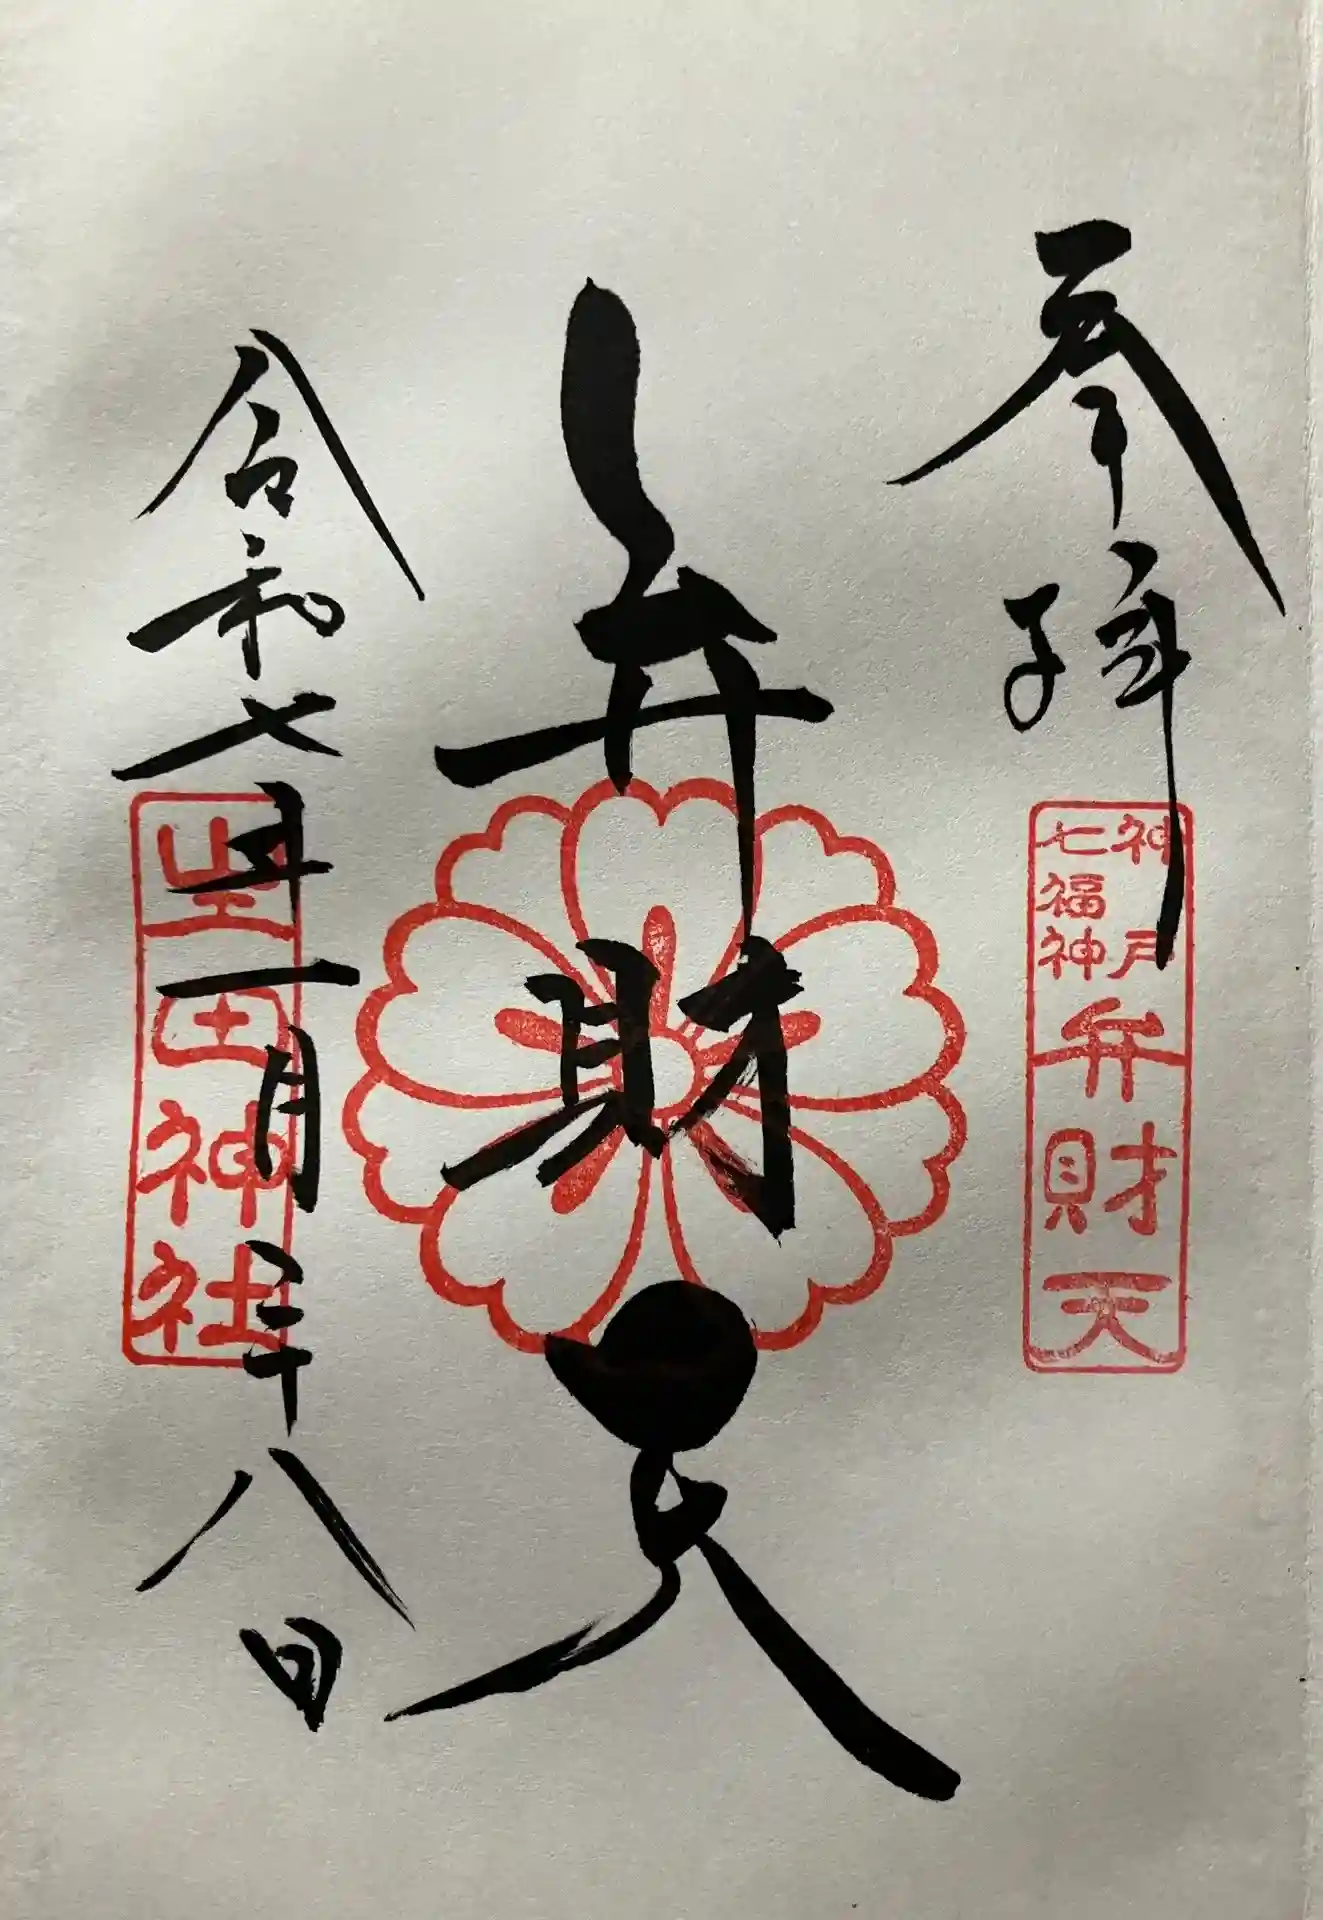 奉拝
神戸
七福神
弁財天
弁財天
令和七年一月二十八日
生田神社